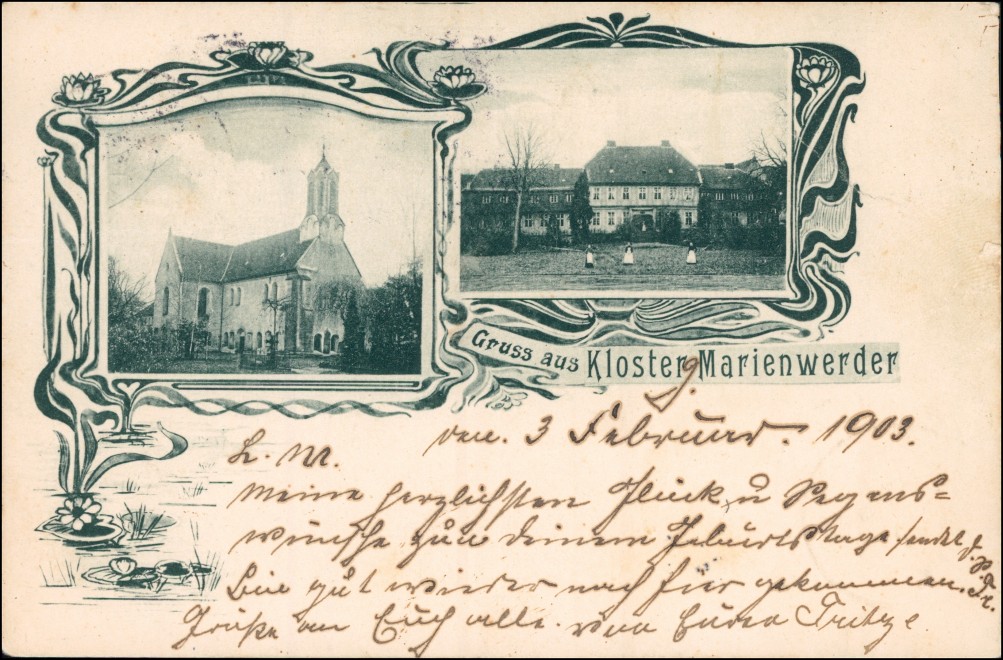 Gruss aus Kloster Marienwerder
den. 3 Februar. 1903.
L. M.
Meine herzlichsten Glück u Segens-
wünsche zum deinem Geburtstage sendet
Bin gut wieder nach hier gekommen.
Grüße an Euch alle. von Eurer Fritze